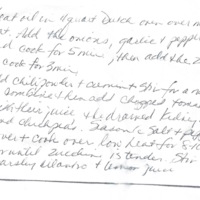 Heat oil in 4 quart Dutch oven over m
Add the onions, garlic & pepper
and cook for 5 min, then add the z
cook for 3 min,
add chili powder & cumin & stir for a m
combine then add chopped tomat
with their juice & drained kidney
and chickpeas. Season Salt & Pepp
cover & cook over low heat for 5-10
or until zucchini is tender. Stir
parsley cilantro & lemon juice